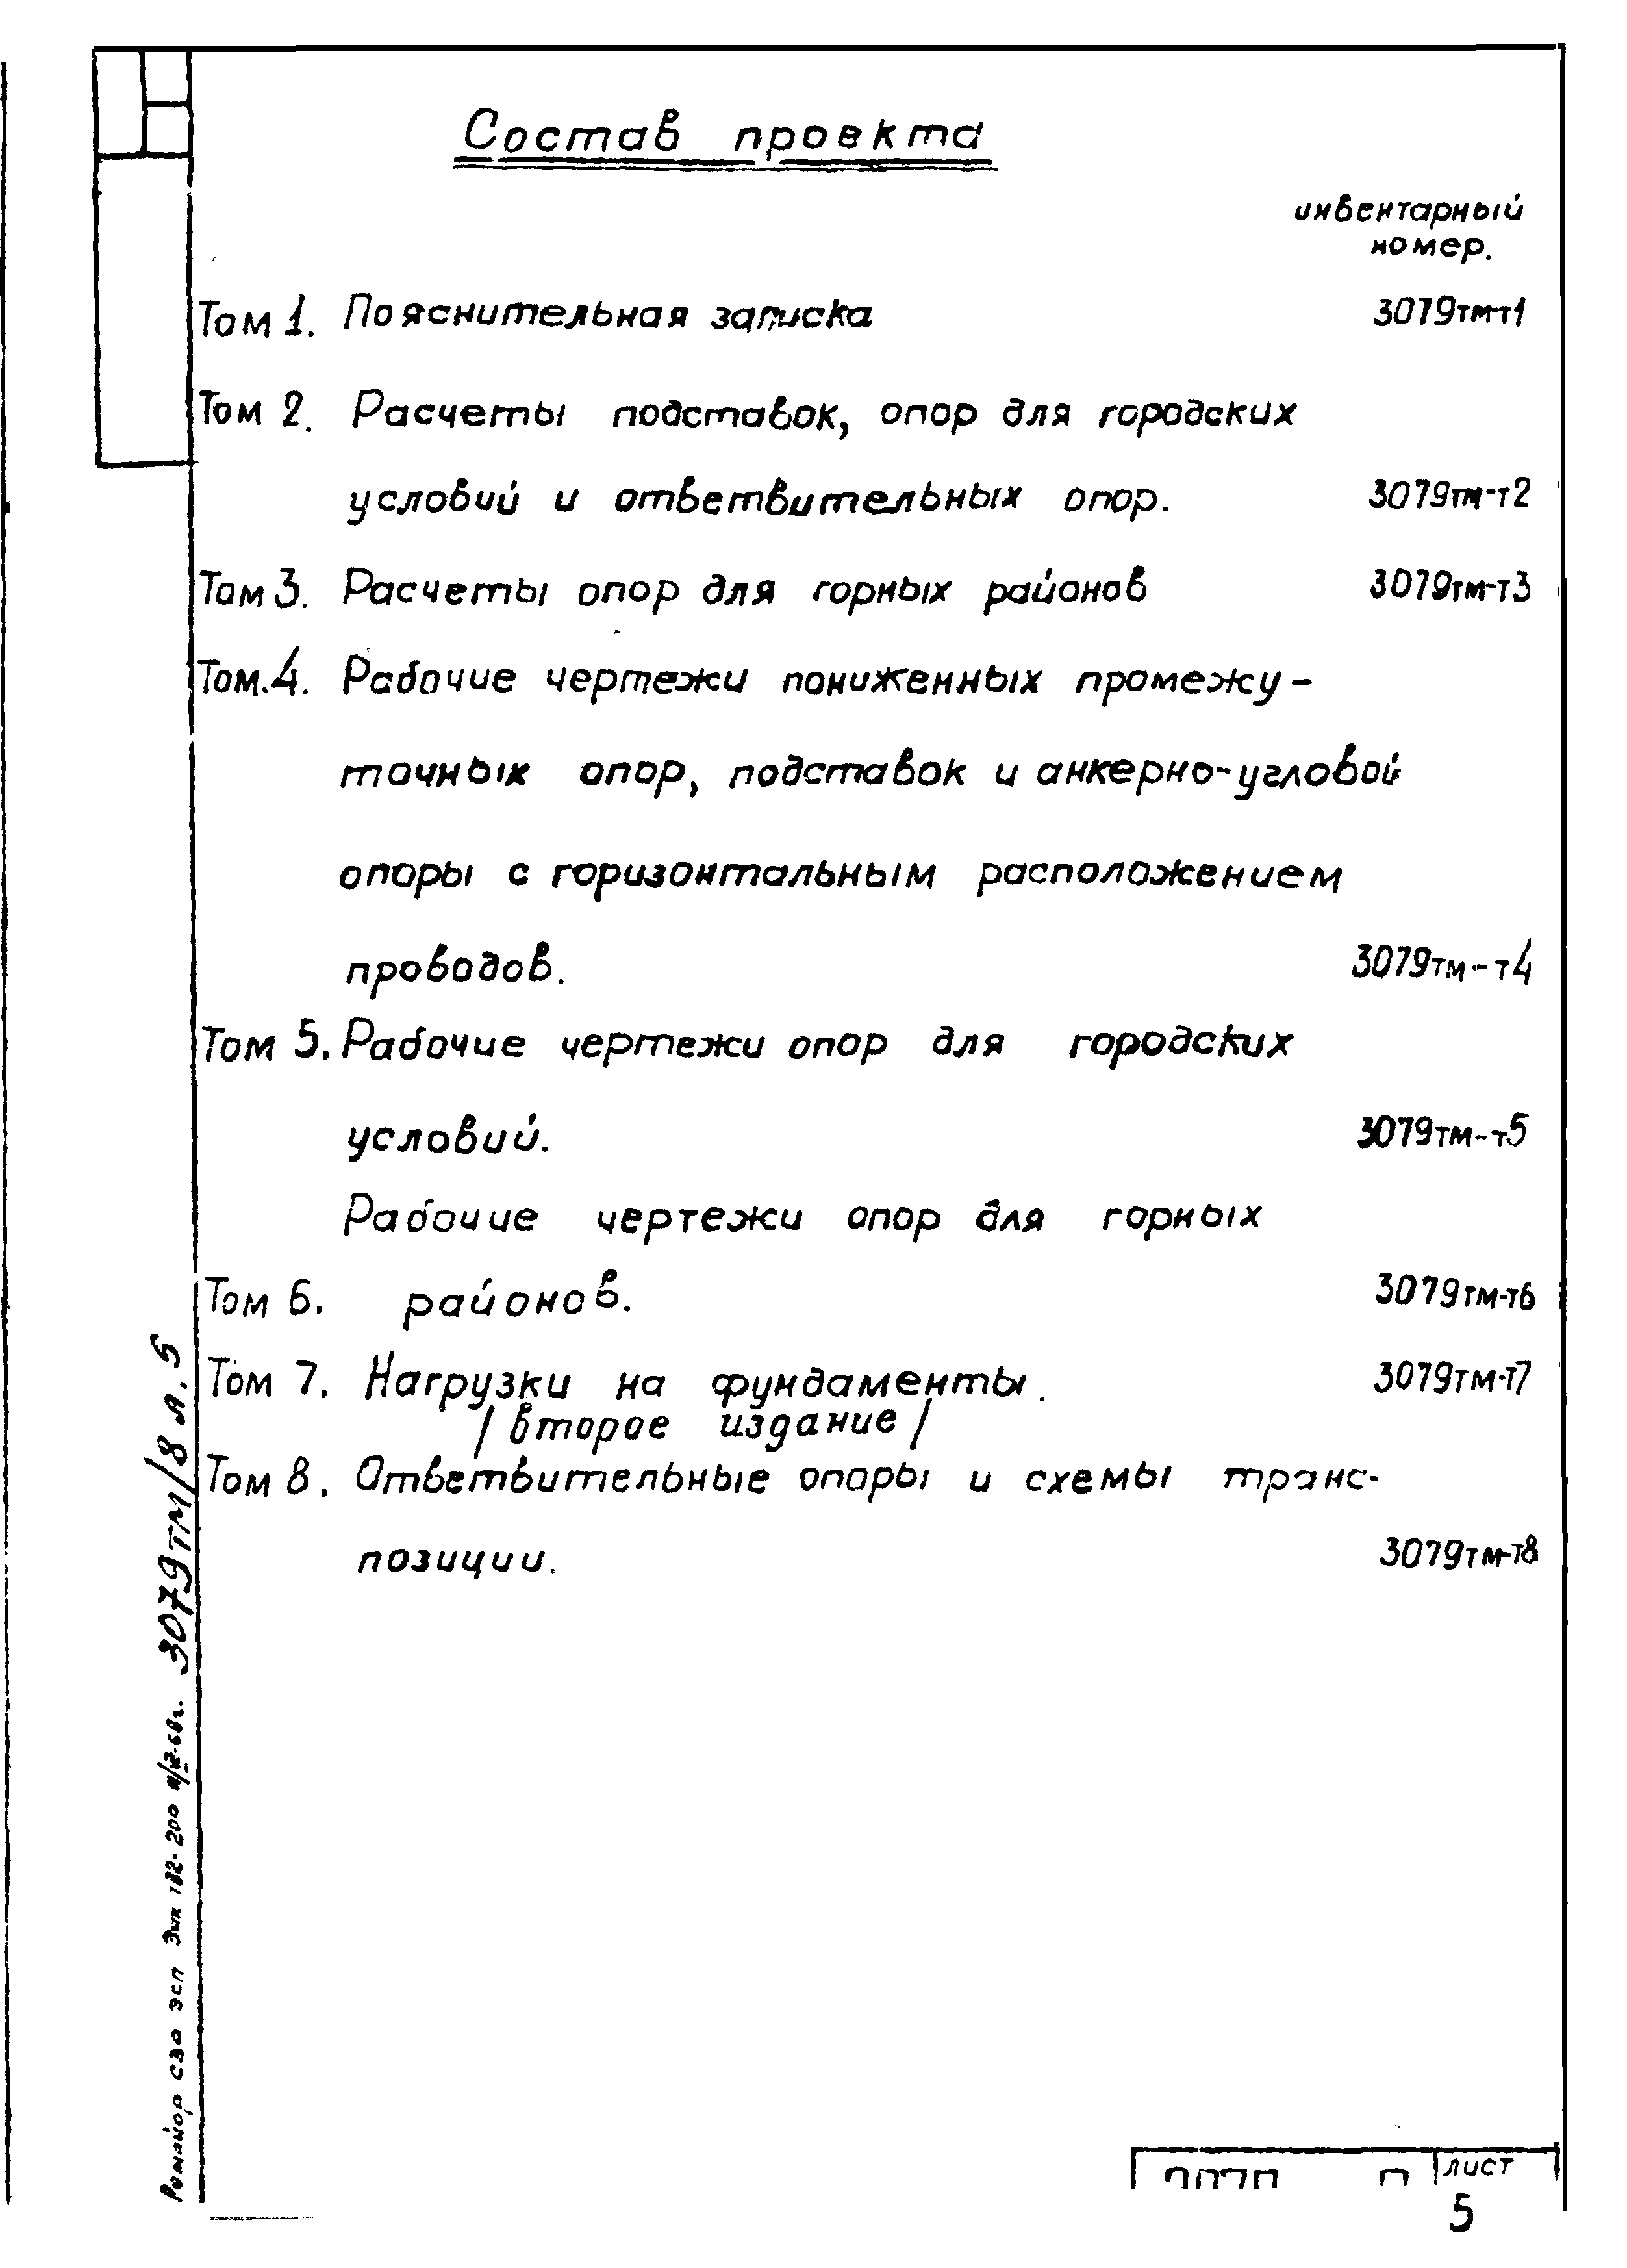 Состав проекта
инвентарный
номер.
Том 1. Пояснительная записка 3079тм-т1
Том 2. Расчеты подставок, опор для городских
условий и ответвительных опор. 3079тм-т2
Том 3. Расчеты опор для горных районов 3079тм-т3
Том.4. Рабочие чертежи пониженных промежу-
точных опор, подставок и анкерно-угловой
опоры с горизонтальным расположением
проводов. 3079тм-т4
Том 5. Рабочие чертежи опор для городских
условий. 3079тм-т5
Рабочие чертежи опор для горных
Том 6. районов. 3079тм-т6
Том 7. Нагрузки на фундаменты. 3079тм-т7
/второе издание/
Том 8. Ответвительные опоры и схемы транс-
позиции. 3079тм-т8
3079тм/8 л. 5
СЗО ЭСП 182-200
лист
5